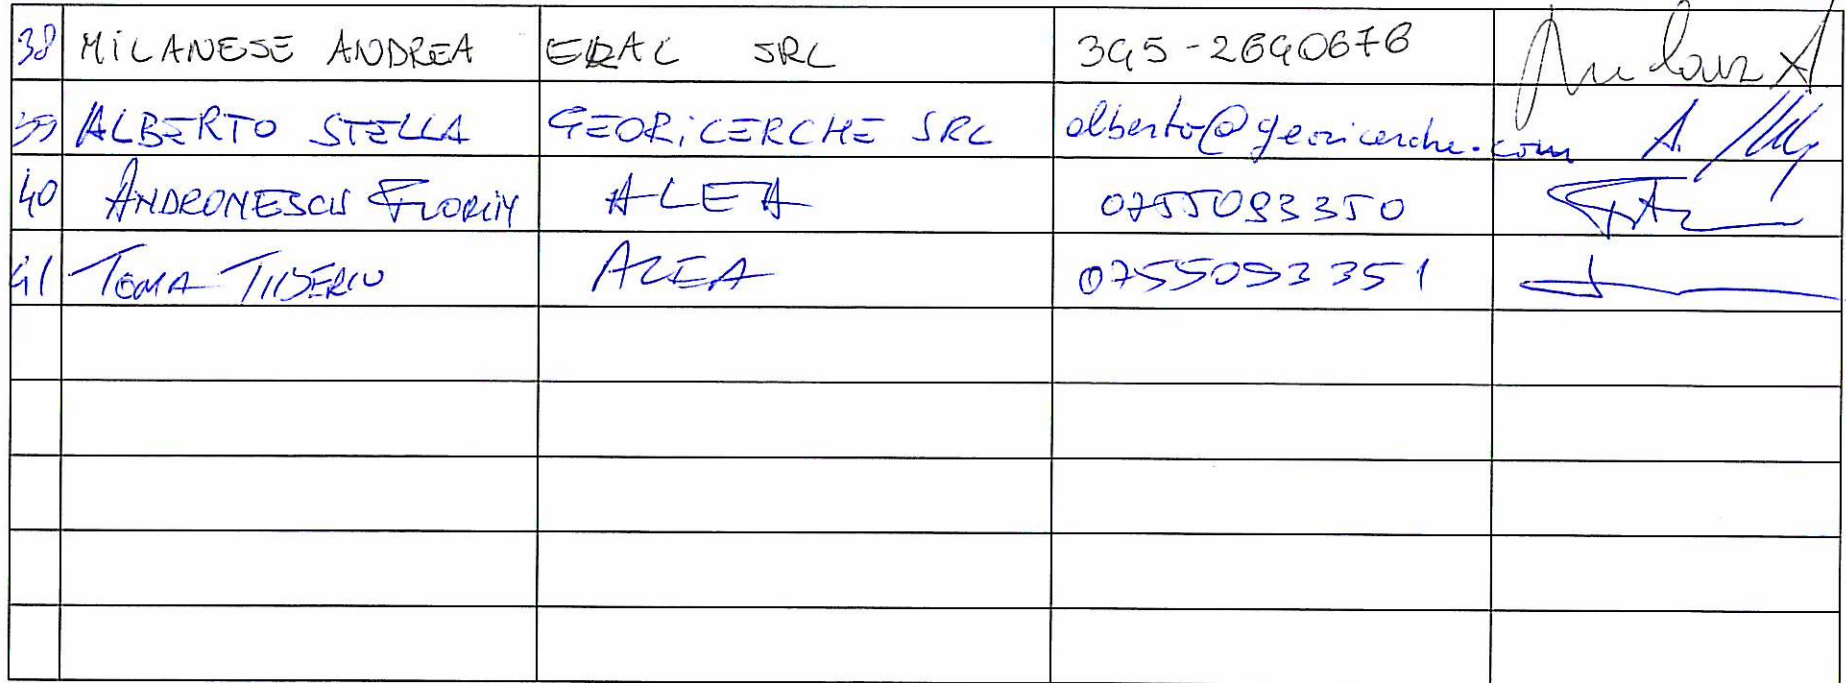 38 MILANESE ANDREA SRL 345-2640676
39 ALBERTO STELLA GEORICERCHE SRL alberto@georicerche.com A.
40 ANDRONESCU FLORIN ALEA 0755093350
41 TOMA TIBERIU ALEA 0755093351